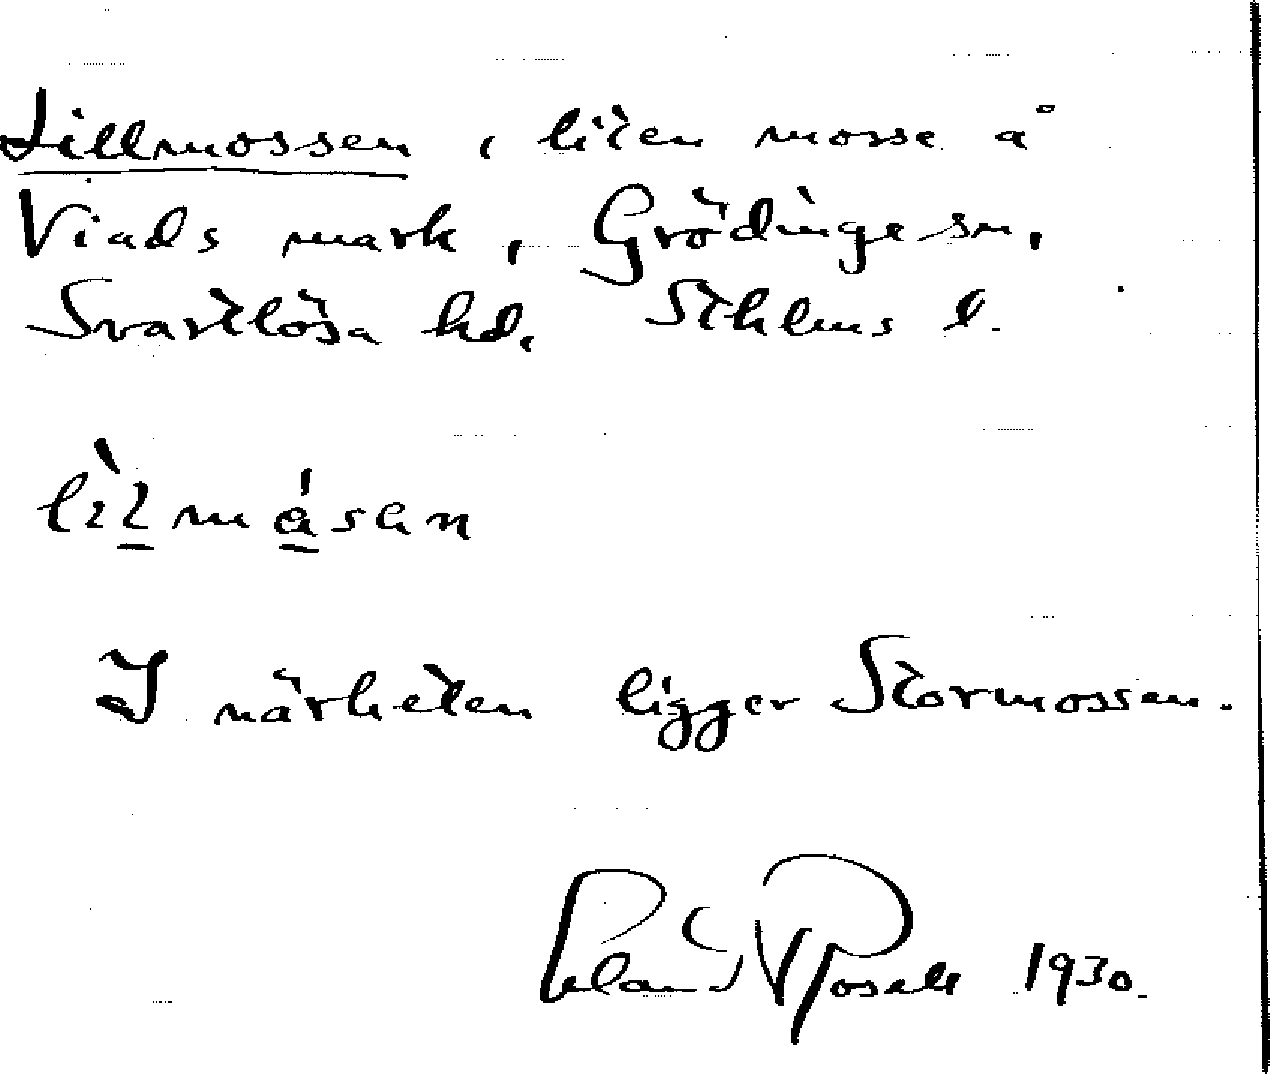 Lillmossen, liten mosse å
Viads mark, Grödinge sn,
Svartlösa hd, Sthlms l.
I närheten ligger Stormossen.
1930.